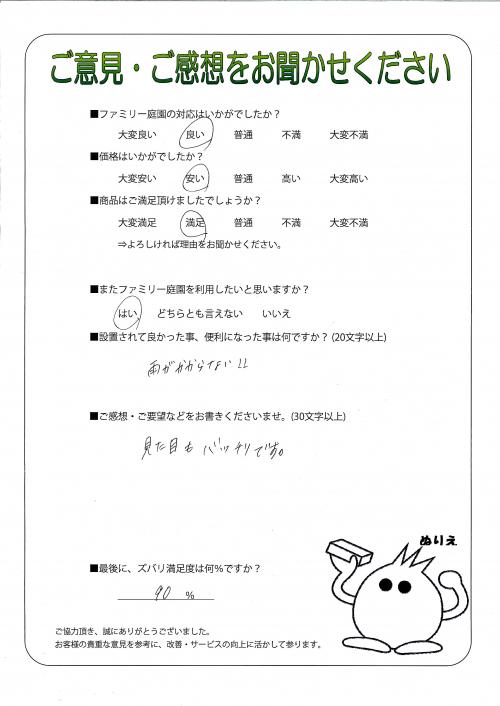 ご意見・ご感想をお聞かせください
■ファミリー庭園の対応はいかがでしたか？
大変良い 良い 普通 不満 大変不満
■価格はいかがでしたか？
大変安い 安い 普通 高い 大変高い
■商品はご満足頂けましたでしょうか？
大変満足 満足 普通 不満 大変不満
⇒よろしければ理由をお聞かせください。
■またファミリー庭園を利用したいと思いますか？
はい どちらとも言えない いいえ
■設置されて良かった事、便利になった事は何ですか？(20文字以上)
雨がかからない!!
■ご感想・ご要望などをお書きくださいませ。(30文字以上)
見た目もバッチリです。
ぬりえ
■最後に、ズバリ満足度は何%ですか？
90 %
ご協力頂き、誠にありがとうございました。
お客様の貴重な意見を参考に、改善・サービスの向上に活かして参ります。